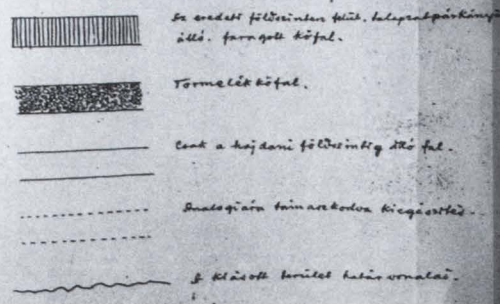 Az eredeti földszinten felül. talapzatpárkányig
álló. faragott kőfal.
Törmelékkőfal.
Csak a hajdani földszintig álló fal.
Analogiára támaszkodva kiegészítés.
A kiásott terület határvonalai.